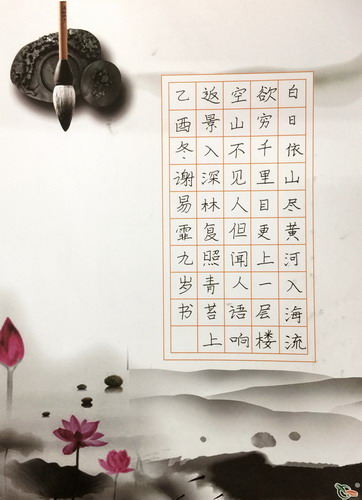 白日依山尽黄河入海流
欲穷千里目更上一层楼
空山不见人但闻人语响
返景入深林复照青苔上
乙酉冬谢易霏九岁书